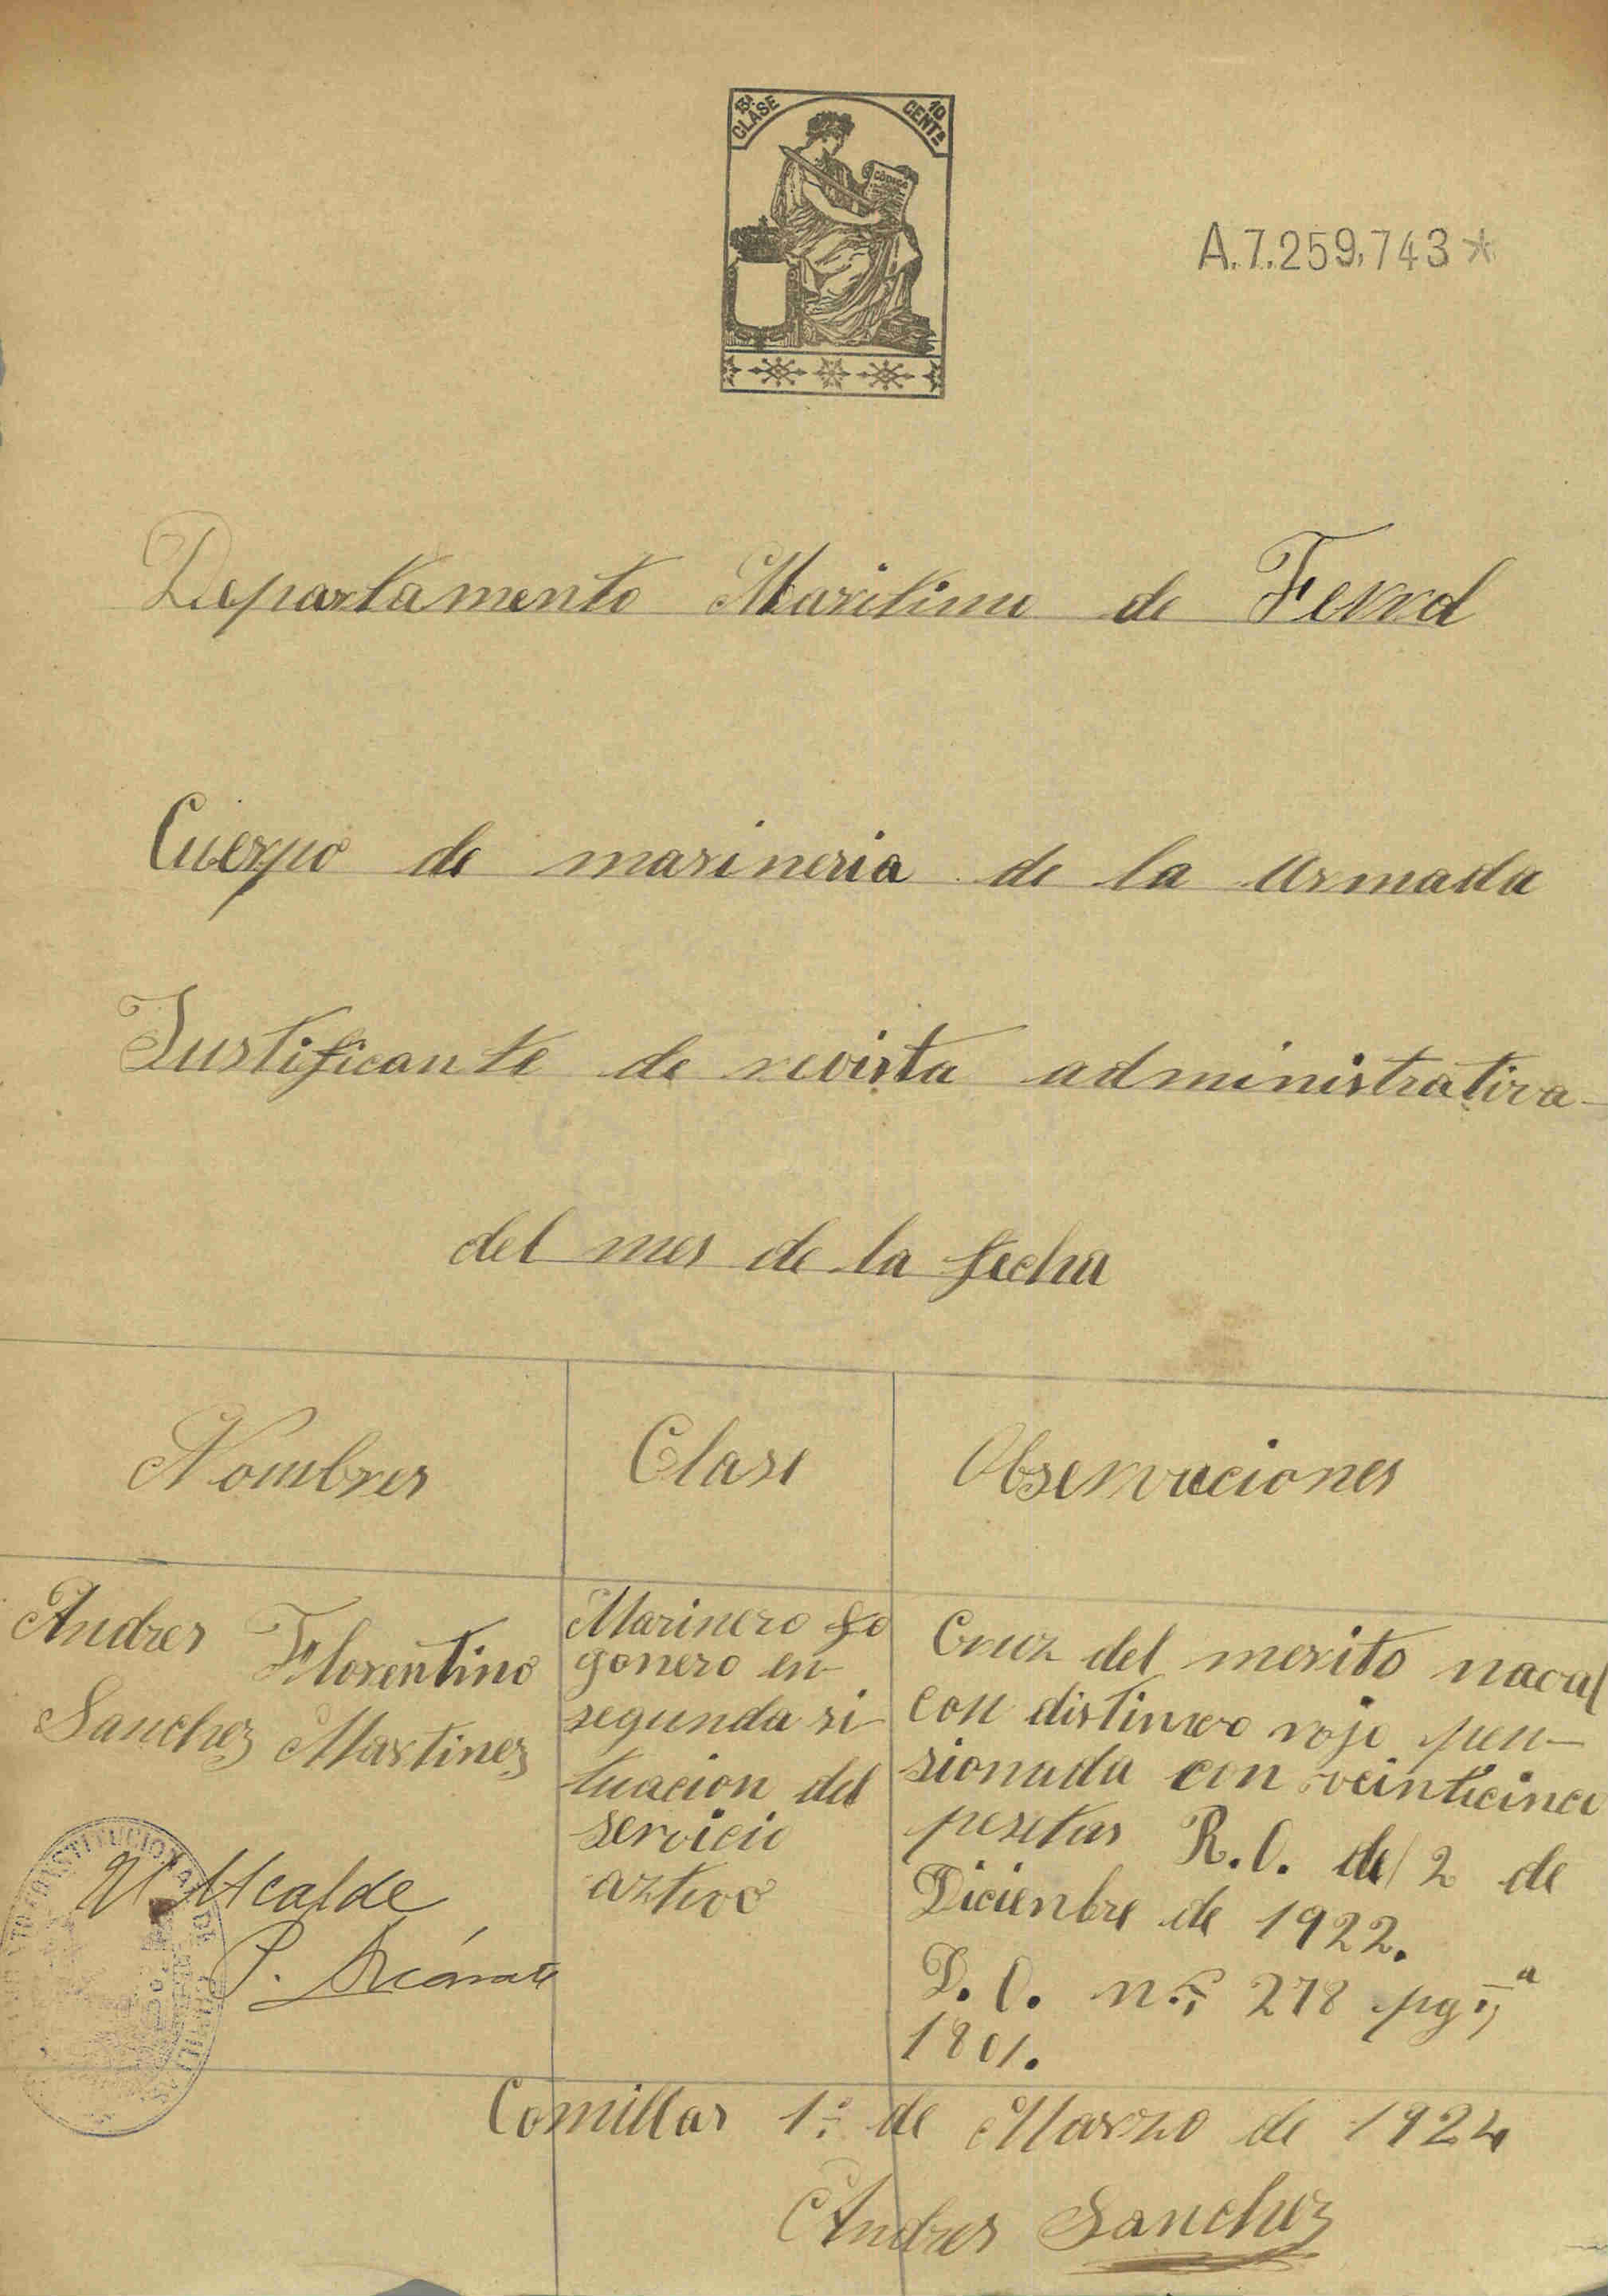 15ª CLASE
10 CENTS
CÓDIGO
A.7.259.743*
Departamento Maritimo de Ferrol
Cuerpo de marineria de la Armada
Justificante de revista administrativa
del mes de la fecha
Nombres
Clase
Observaciones
Andres Florentino
Sanchez Martinez
Marinero fo
gonero en
segunda si
tuacion del
servicio
aztivo
Cruz del merito naval
con distintivo rojo pen-
sionada con veinticinco
pesetas R.O. de 2 de
Dicienbre de 1922.
D.O. n.º 278 pg.ª
1801.
El Alcalde
P.
CONSTITUCIONAL DE
Comillas 1º de Marzo de 1924
Andres Sanchez